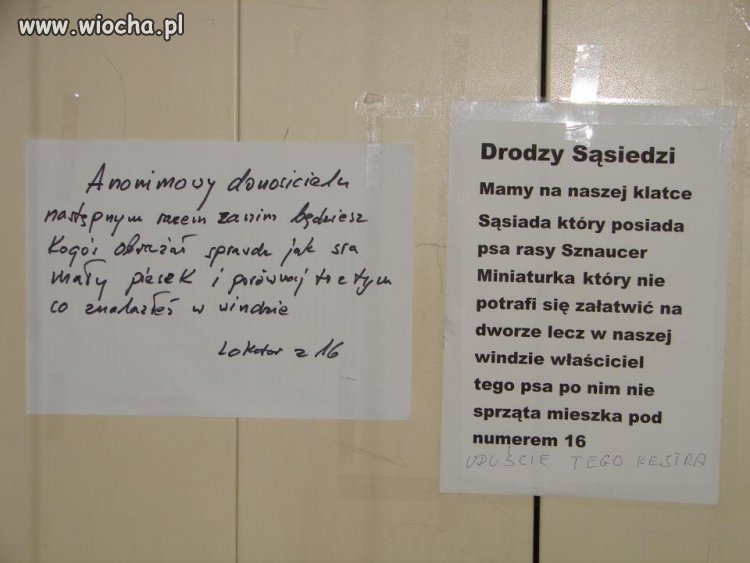 www.wiocha.pl
Anonimowy donosicielu
następnym razem zanim będziesz
kogoś obrażał sprawdź jak sra
mały piesek i porównaj to z tym
co znalazłeś w windzie
Lokator z 16
Drodzy Sąsiedzi
Mamy na naszej klatce
Sąsiada który posiada
psa rasy Sznaucer
Miniaturka który nie
potrafi się załatwić na
dworze lecz w naszej
windzie właściciel
tego psa po nim nie
sprząta mieszka pod
numerem 16
UDUŚCIE TEGO